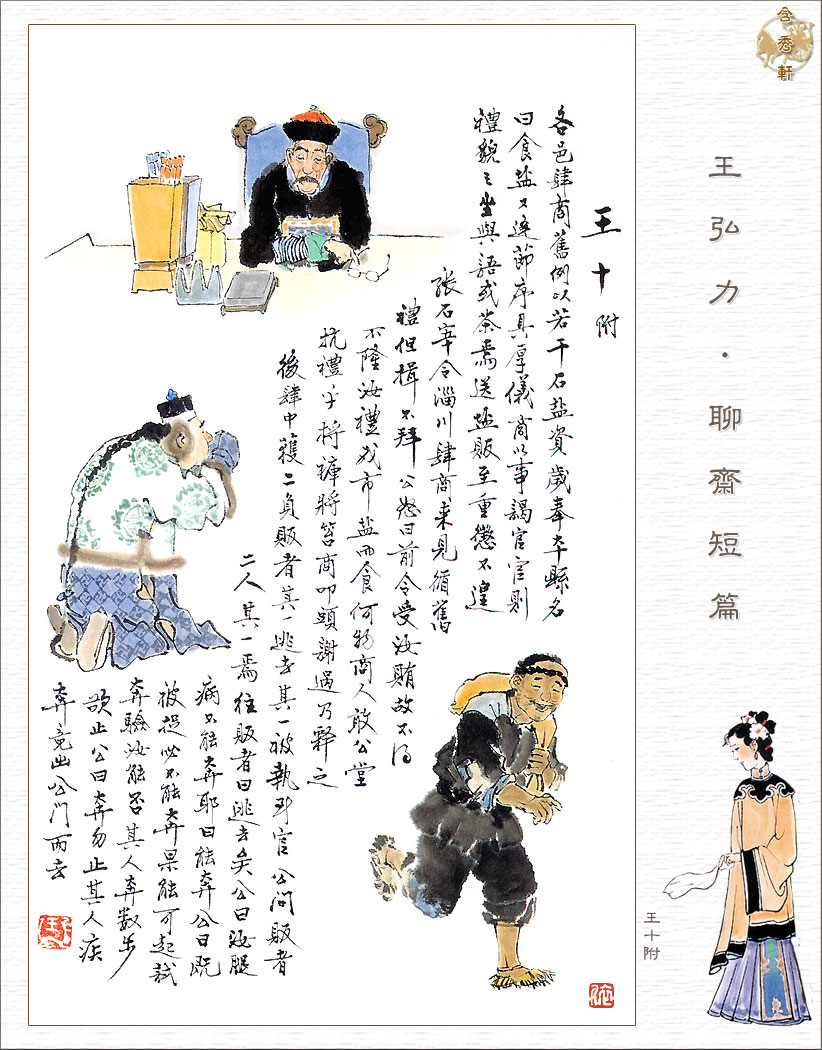 含秀軒
王弘力·聊齋短篇
王十附
各邑肆商舊例以若干石盐資歲奉本縣名
曰食盐又逢節序具厚儀商以事謁官官則
禮貌之坐與語或茶焉送盐販至重懲不遑
張石宰令淄川肆商來見循舊
禮但揖不拜公怒曰前令受汝賄故不得
不隆汝禮我市盐而食何物商人敢公堂
抗禮乎捋褲將笞商叩頭謝過乃釋之
後肆中獲二負販者其一逃去其一被執到官公問販者
二人其一焉往販者曰逃去矣公曰汝腿
病不能奔耶曰能奔公曰既
被捉必不能奔果能可起試
奔驗汝能否其人奔數步
欲止公曰奔勿止其人疾
奔竟出公門而去
王十附